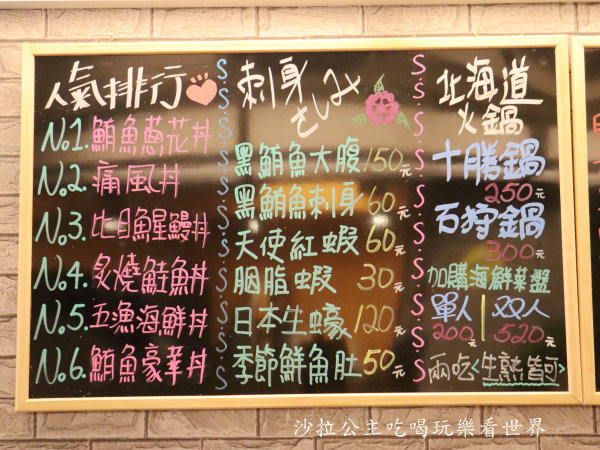 人氣排行
No.1. 鮪魚蔥花丼
No.2. 痛風丼
No.3. 比目魚星鰻丼
No.4. 炙燒鮭魚丼
No.5. 五漁海鮮丼
No.6. 鮪魚豪華丼
刺身
さしみ
黑鮪魚大腹 150元
黑鮪魚刺身 60元
天使紅蝦 60元
胭脂蝦 30元
日本生蠔 120元
季節鮮魚肚 50元
北海道
火鍋
十勝鍋
250元
石狩鍋
300元
加購海鮮菜盤
單人 | 双人
200元 | 520元
兩吃<生熟皆可>
沙拉公主吃喝玩樂看世界